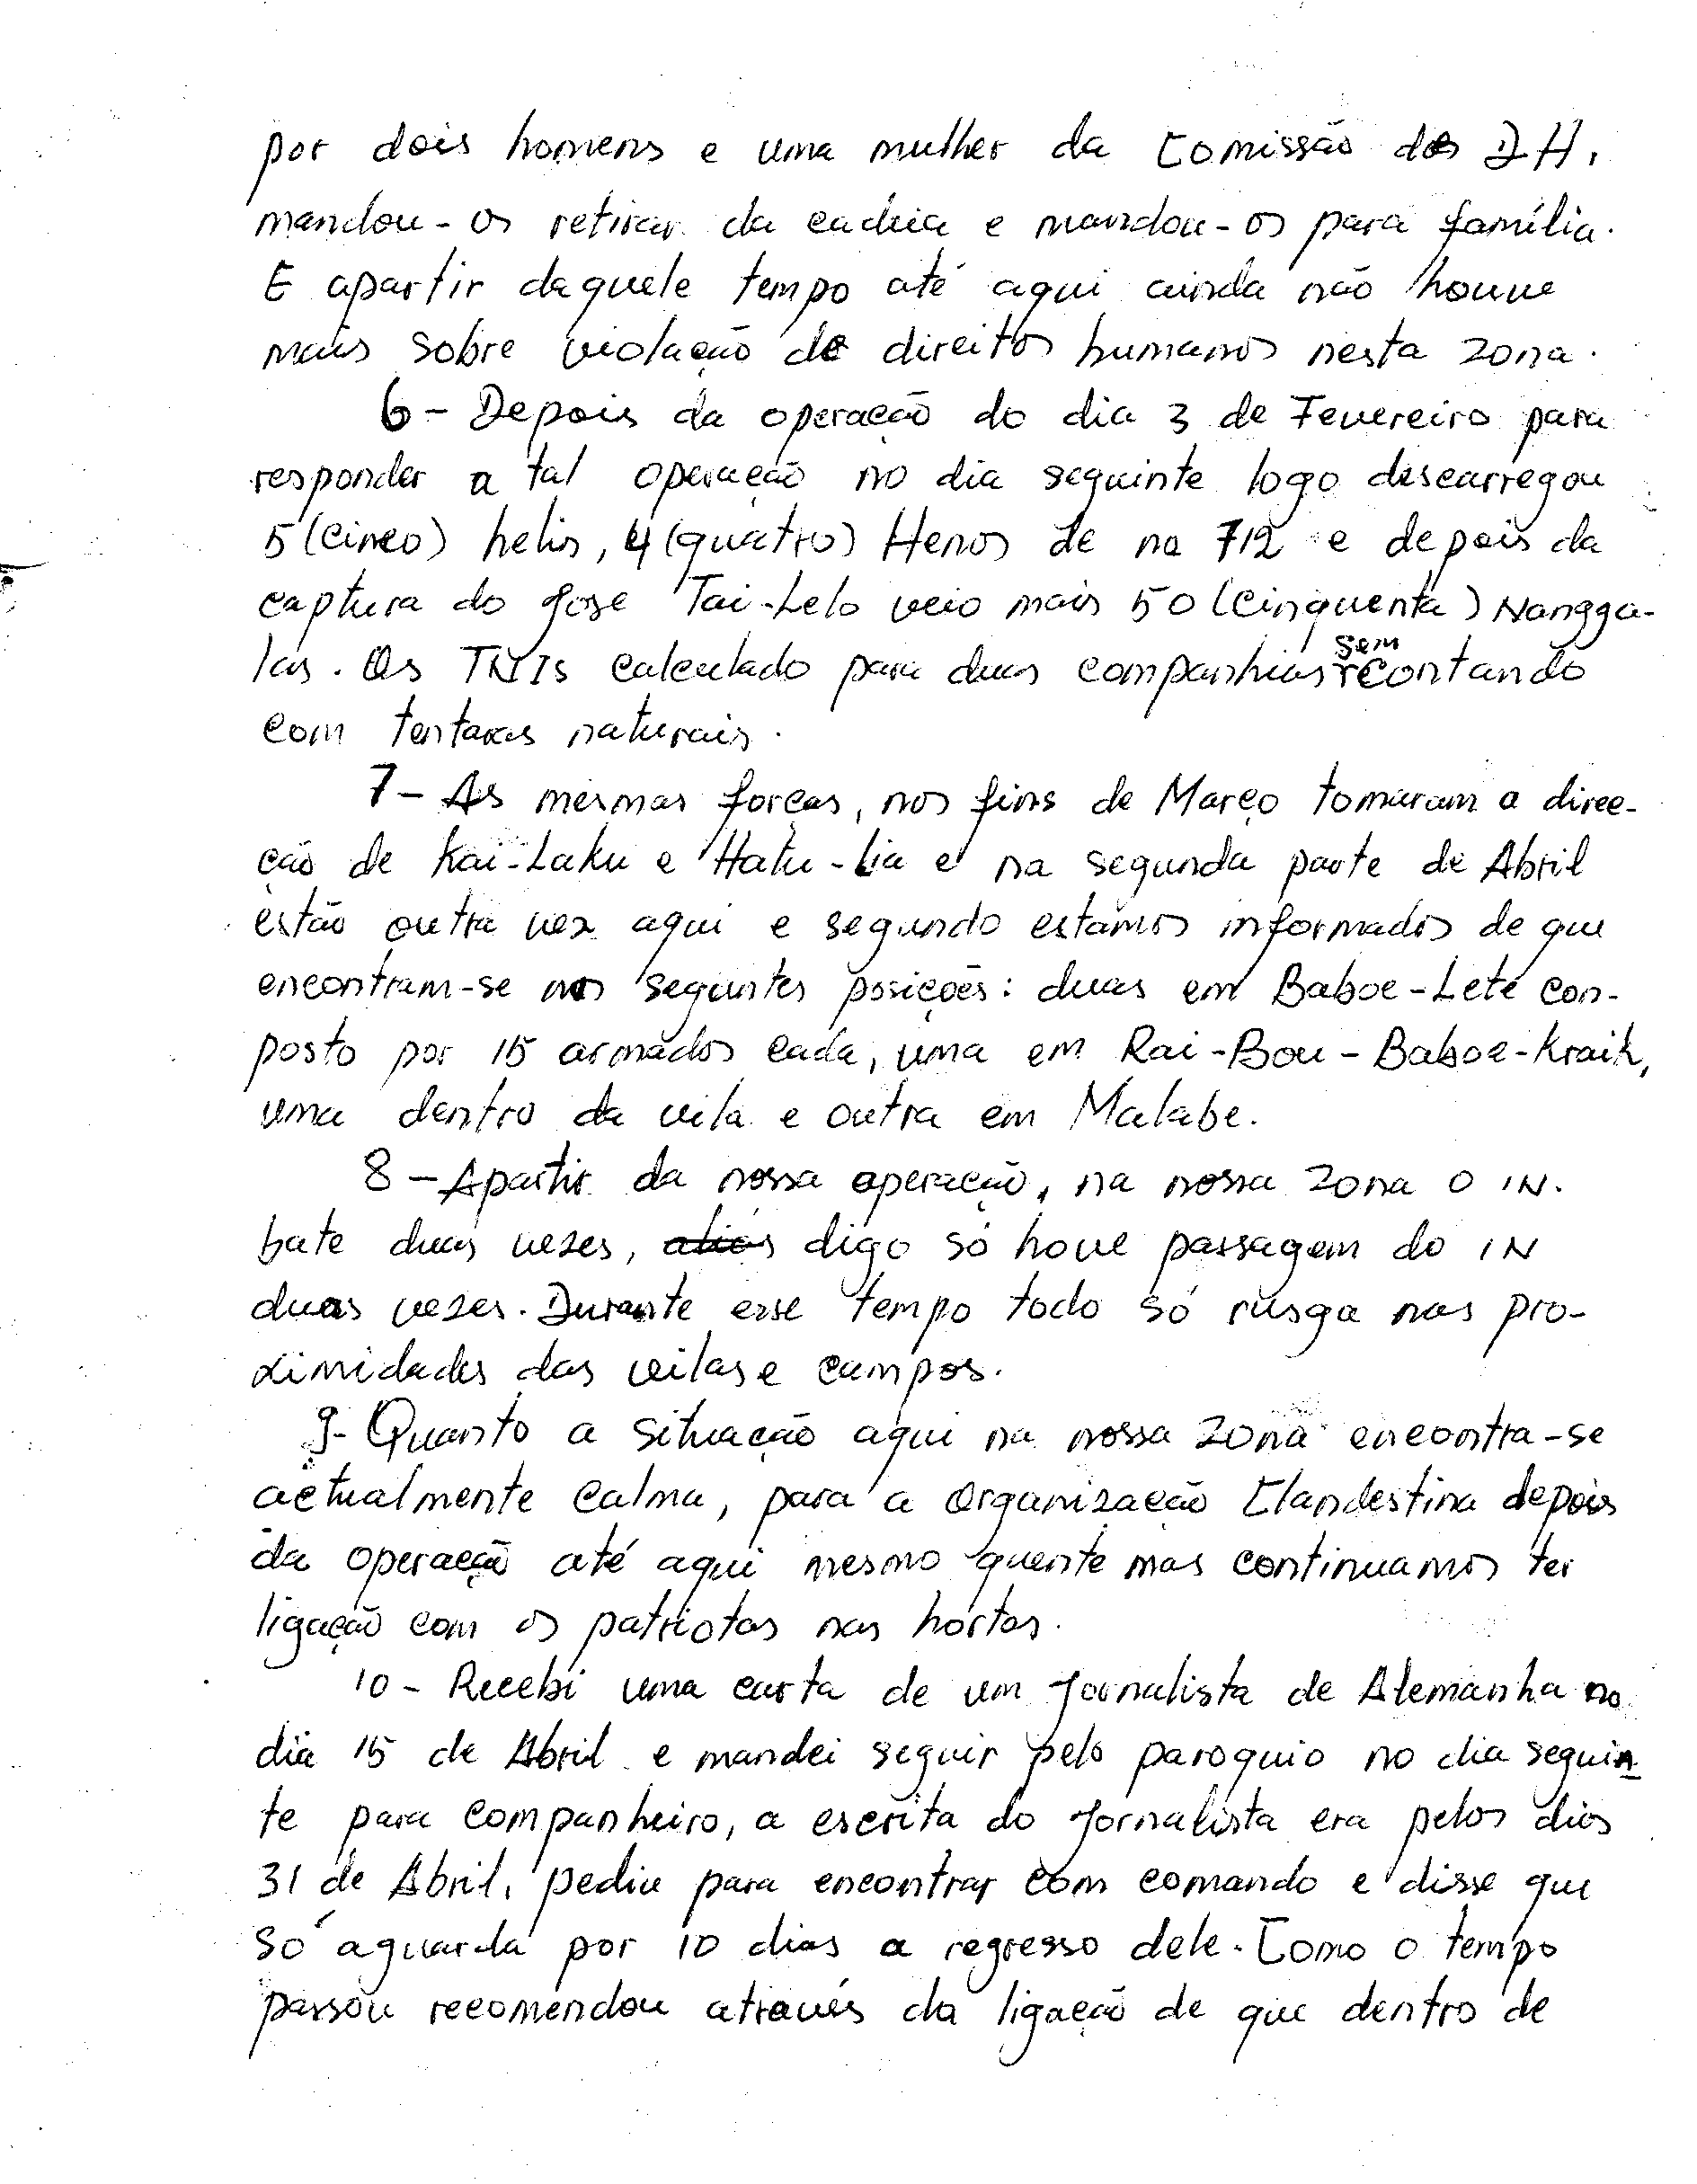 por dois homens e uma mulher da Comissão dos DH,
mandou-os retirar da cadeia e mandou-os para família.
E apartir daquele tempo até aqui ainda não houve
mais sobre violação de direitos humanos nesta zona.
6 - Depois da operação do dia 3 de Fevereiro para
responder a tal operação no dia seguinte logo descarregou
5 (cinco) helis, 4 (quatro) Henos de no 712 e depois da
captura do Jose Tai-Lelo veio mais 50 (cinquenta) Nangga-
las. Os TNIs calculado para duas companhias sem contando
com tentaras naturais.
7 - As mesmas forças, nos fins de Março tomaram a direc-
ção de Kai-Laku e Hatu-Lia e na segunda parte de Abril
estão outra vez aqui e segundo estamos informados de que
encontram-se nos seguintes posições: duas em Baboe-Leté con-
posto por 15 armados cada, uma em Rai-Bou-Baboe-Kraik,
uma dentro da vila e outra em Malabe.
8 - Apartir da nossa operação, na nossa zona o IN.
bate duas vezes, aliás digo só houve passagem do IN
duas vezes. Durante esse tempo todo só rusga nas pro-
ximidades das vilas e campos.
9- Quanto a situação aqui na nossa zona encontra-se
actualmente calma, para a Organização Clandestina depois
da operação até aqui mesmo quente mas continuamos ter
ligação com os patriotas nas hortas.
10 - Recebi uma carta de um Jornalista de Alemanha no
dia 15 de Abril e mandei seguir pelo paroquio no dia seguin-
te para companheiro, a escrita do Jornalista era pelos dias
31 de Abril, pediu para encontrar com comando e disse que
só aguarda por 10 dias a regresso dele. Como o tempo
passou recomendou através da ligação de que dentro de